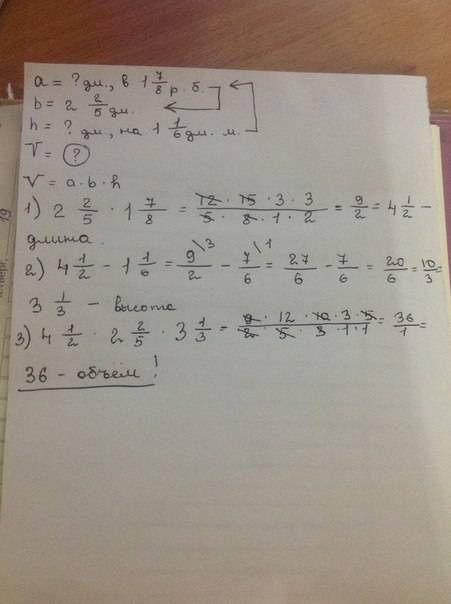 a = ? дм., в 1 7/8 р. б.
b = 2 2/5 дм.
h = ? дм., на 1 1/6 дм. м.
V = ?
V = a · b · h
1) 2 2/5 · 1 7/8 = 12 · 15 · 3 · 3 / 5 · 8 · 1 · 2 = 9/2 = 4 1/2 –
длина.
2) 4 1/2 - 1 1/6 = 9/2 \3 - 7/6 \1 = 27/6 - 7/6 = 20/6 = 10/3 =
3 1/3 – высота
3) 4 1/2 · 2 2/5 · 3 1/3 = 9 · 12 · 10 · 3 · 5 / 2 · 5 · 3 · 1 · 1 = 36/1 =
36 – объём!
19